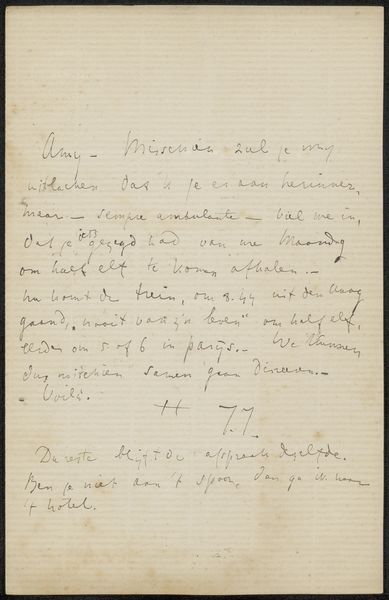 Amy – Misschien zul je my
uitlachen dat ik je er aan herinner,
maar – sempre ambulante – viel me in,
dat je iets gezegd had van me Maandag
om half elf te komen afhalen. –
nu komt de trein, om 8.44 uit den Haag
gaand, "nooit van z'n leven" om half elf,
om 5 of 6 in parijs. – We kunnen
dus misschien samen gaan dineeren. –
Voilà.
Du reste blijft de afspraak dezelfde.
Ben je niet aan 't spoor, dan ga ik naar
't hotel.